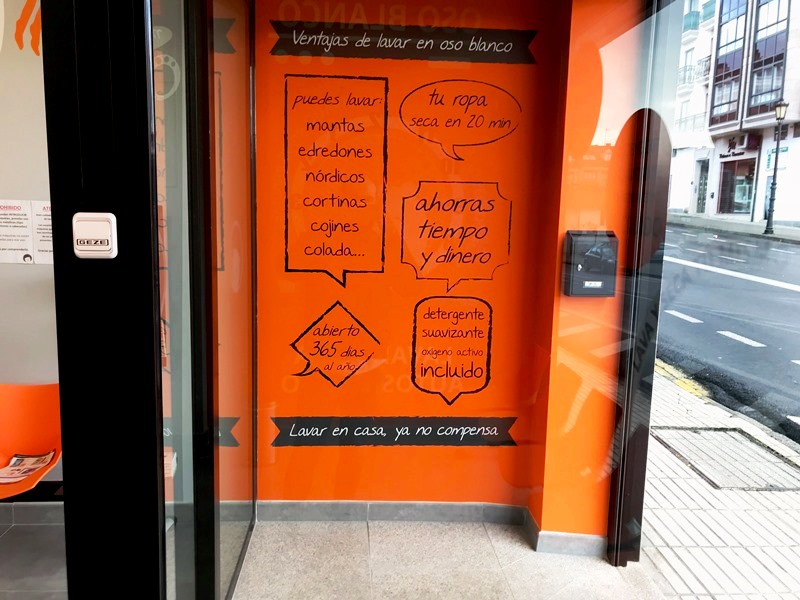 Ventajas de lavar en oso blanco
puedes lavar:
mantas
edredones
nórdicos
cortinas
cojines
colada...
tu ropa
seca en 20 min
ahorras
tiempo
y dinero
abierto
365 días
al año
detergente
suavizante
oxígeno activo
incluido
Lavar en casa, ya no compensa
GEZE